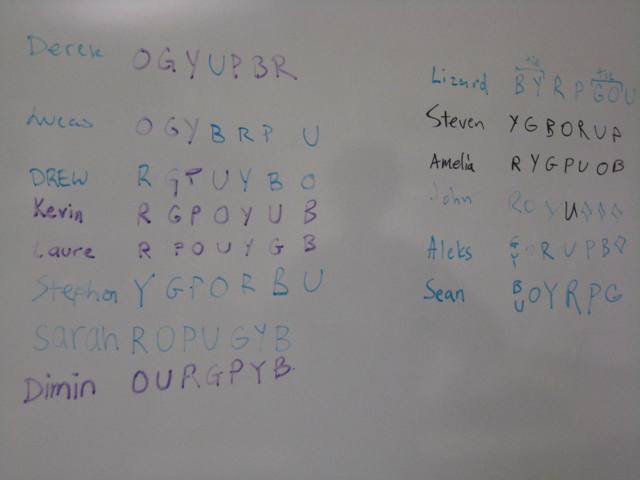 Derek OGYUPBR
Lucas OGYBRP U
DREW R GPUYBO
Kevin R GPOYUB
Laure R POUYGB
Stephen YGPORBU
Sarah ROPUGYB
Dimin OURGPYB
tie tie
Lizard BYRPGOU
Steven YGBORUP
Amelia RYGPUOB
John ROYU◊◊◊
Aleks G Y O R U P B ◊
Sean B U O Y R P G